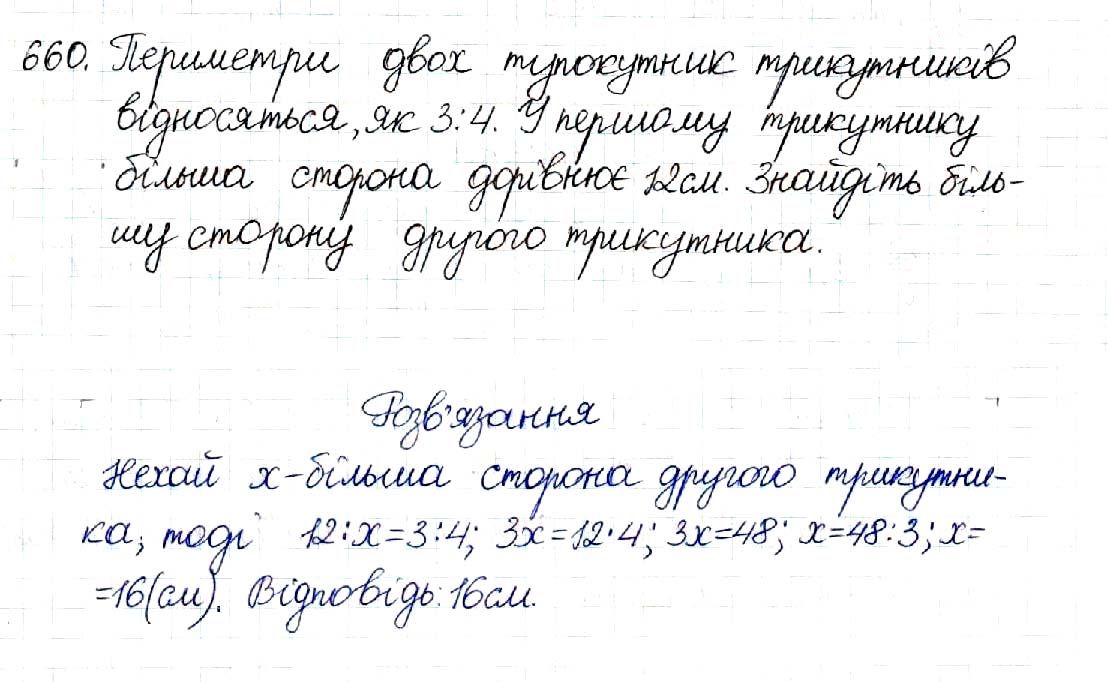 660. Периметри двох тупокутник трикутників
відносяться, як 3:4. У першому трикутнику
більша сторона дорівнює 12см. Знайдіть біль-
шу сторону другого трикутника.
Розв'язання
Нехай х-більша сторона другого трикутни-
ка, тоді 12:х=3:4; 3х=12·4; 3х=48; х=48:3; х=
=16(см). Відповідь: 16см.